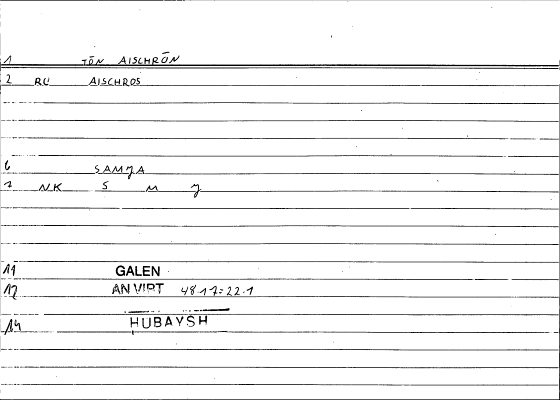 1 TŌN AISCHRŌN
2 RU AISCHROS
6 SAMJA
7 NK S M J
11 GALEN
12 AN VIRT 48.17:22.1
14 HUBAYSH